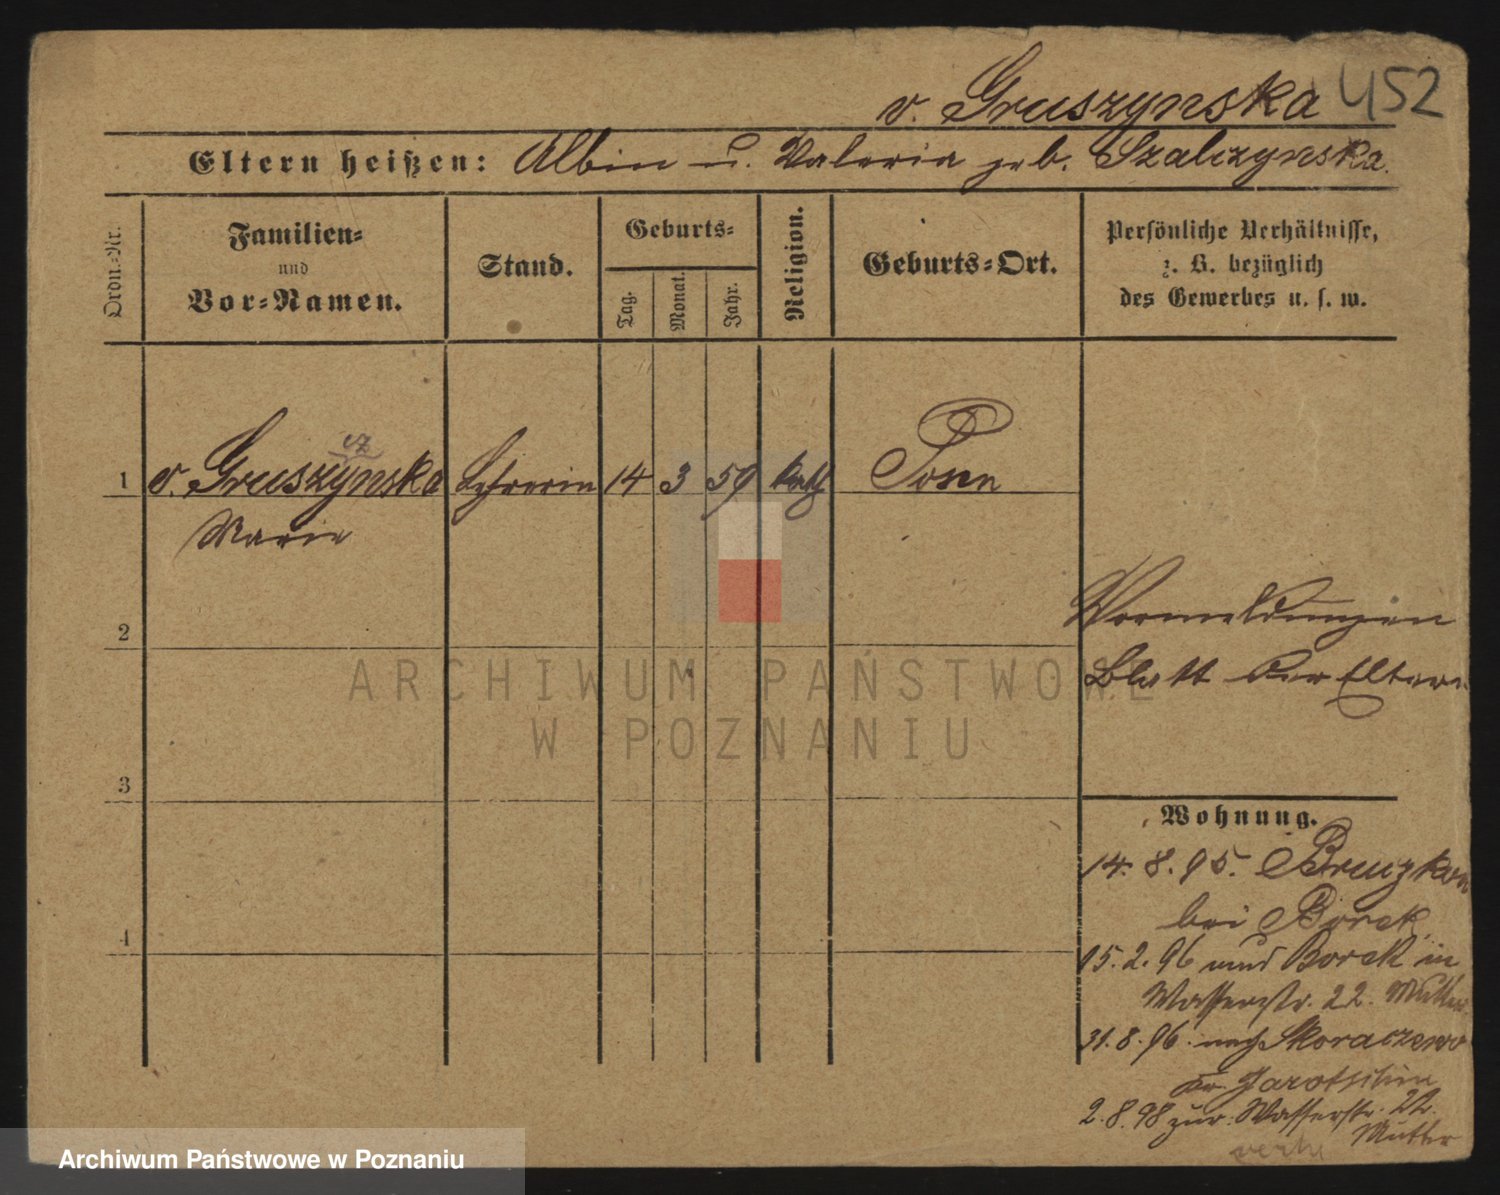 v. Gruszynska 452
Eltern heißen: Albin u. Valeria geb. Szalczynska.
Ordn.-Nr.
Familien-
und
Vor-Namen.
Stand.
Geburts-
Tag.
Monat.
Jahr.
Religion.
Geburts-Ort.
Persönliche Verhältnisse,
z. B. bezüglich
des Gewerbes u. s. w.
cz
1 v. Gruszynska Lehrerin 14 3 59 kath Posen
Marie
Vormeldungen
2
Blatt der Eltern
ARCHIWUM PAŃSTWOWE
W POZNANIU
3
Wohnung.
14. 8. 95.
bei Borek
4
15. 2. 96 aus Borek in
Wasserstr. 22. Mutter
31. 8. 96. nach Skoraczewo
Kr. Jarotschin
2. 8. 98 zur. Wasserstr. 22.
Mutter
Archiwum Państwowe w Poznaniu